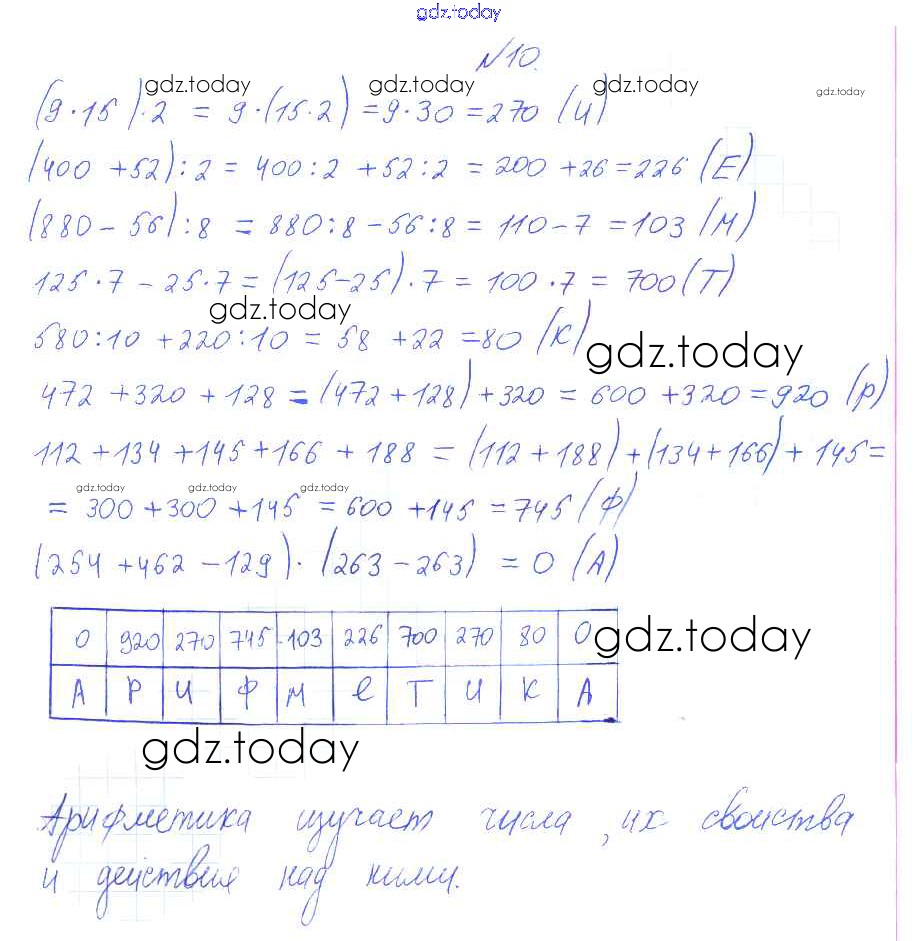 gdz.today
№10.
gdz.today gdz.today gdz.today gdz.today
(9·15)·2 = 9·(15·2) = 9·30 = 270 (И)
(400 + 52) : 2 = 400 : 2 + 52 : 2 = 200 + 26 = 226 (Е)
(880 - 56) : 8 = 880 : 8 - 56 : 8 = 110 - 7 = 103 (М)
125·7 - 25·7 = (125-25)·7 = 100·7 = 700 (Т)
gdz.today
580:10 + 220:10 = 58 + 22 = 80 (К)
gdz.today
472 + 320 + 128 = (472 + 128) + 320 = 600 + 320 = 920 (Р)
112 + 134 + 145 + 166 + 188 = (112 + 188) + (134 + 166) + 145 =
gdz.today gdz.today gdz.today
= 300 + 300 + 145 = 600 + 145 = 745 (Ф)
(254 + 462 - 129) · (263 - 263) = 0 (А)
0 920 270 745 103 226 700 270 80 0
gdz.today
А Р И Ф М Е Т И К А
gdz.today
Арифметика изучает числа, их свойства
и действия над ними.